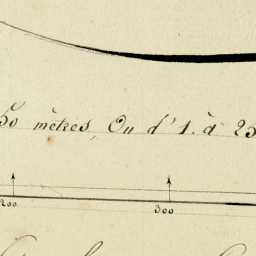 50 mètres, Ou d'1. à 25
200 300